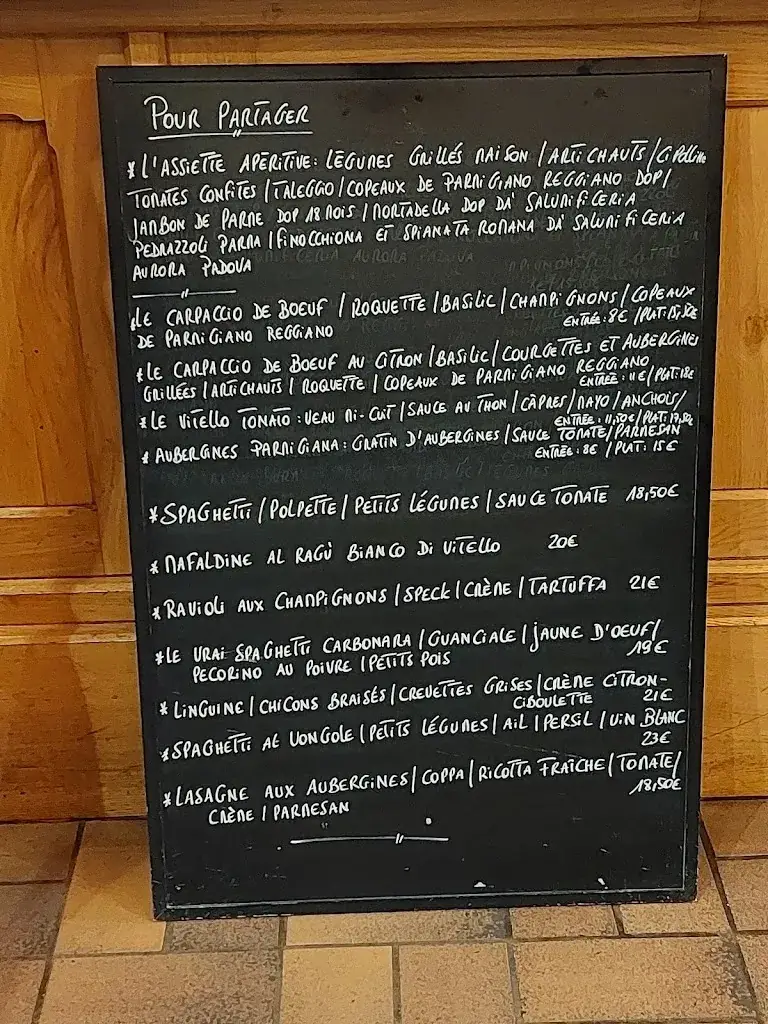 POUR PARTAGER
*L'ASSIETTE APERITIVE: LÉGUMES GRILLÉS MAISON / ARTICHAUTS / CIPOLLINE
TOMATES CONFITES / TALEGGIO / COPEAUX DE PARMIGIANO REGGIANO DOP /
JAMBON DE PARME DOP 18 MOIS / MORTADELLA DOP DA' SALUMIFICERIA
PEDRAZZOLI PARMA / FINOCCHIONA ET SPIANATA ROMANA DA' SALUMIFICERIA
AURORA PADOVA
*LE CARPACCIO DE BOEUF / ROQUETTE / BASILIC / CHAMPIGNONS / COPEAUX
DE PARMIGIANO REGGIANO ENTRÉE: 8€ / PLAT:
*LE CARPACCIO DE BOEUF AU CITRON / BASILIC / COURGETTES ET AUBERGINES
GRILLÉES / ARTICHAUTS / ROQUETTE / COPEAUX DE PARMIGIANO REGGIANO
ENTRÉE: 11€ / PLAT: 18€
*LE VITELLO TONATO: VEAU MI-CUIT / SAUCE AU THON / CÂPRES / MAYO / ANCHOIS /
ENTRÉE: 11,50€ / PLAT: 17,50€
*AUBERGINES PARMIGIANA: GRATIN D'AUBERGINES / SAUCE TOMATE / PARMESAN
ENTRÉE: 8€ / PLAT: 15€
*SPAGHETTI / POLPETTE / PETITS LÉGUMES / SAUCE TOMATE 18,50€
*MAFALDINE AL RAGÙ BIANCO DI VITELLO 20€
*RAVIOLI AUX CHAMPIGNONS / SPECK / CRÈME / TARTUFFA 21€
*LE VRAI SPAGHETTI CARBONARA / GUANCIALE / JAUNE D'OEUF /
PECORINO AU POIVRE / PETITS POIS 19€
*LINGUINE / CHICONS BRAISÉS / CREVETTES GRISES / CRÈME CITRON-
CIBOULETTE 21€
*SPAGHETTI AL VONGOLE / PETITS LÉGUMES / AIL / PERSIL / VIN BLANC
23€
*LASAGNE AUX AUBERGINES / COPPA / RICOTTA FRAÎCHE / TOMATE /
CRÈME / PARMESAN 18,50€